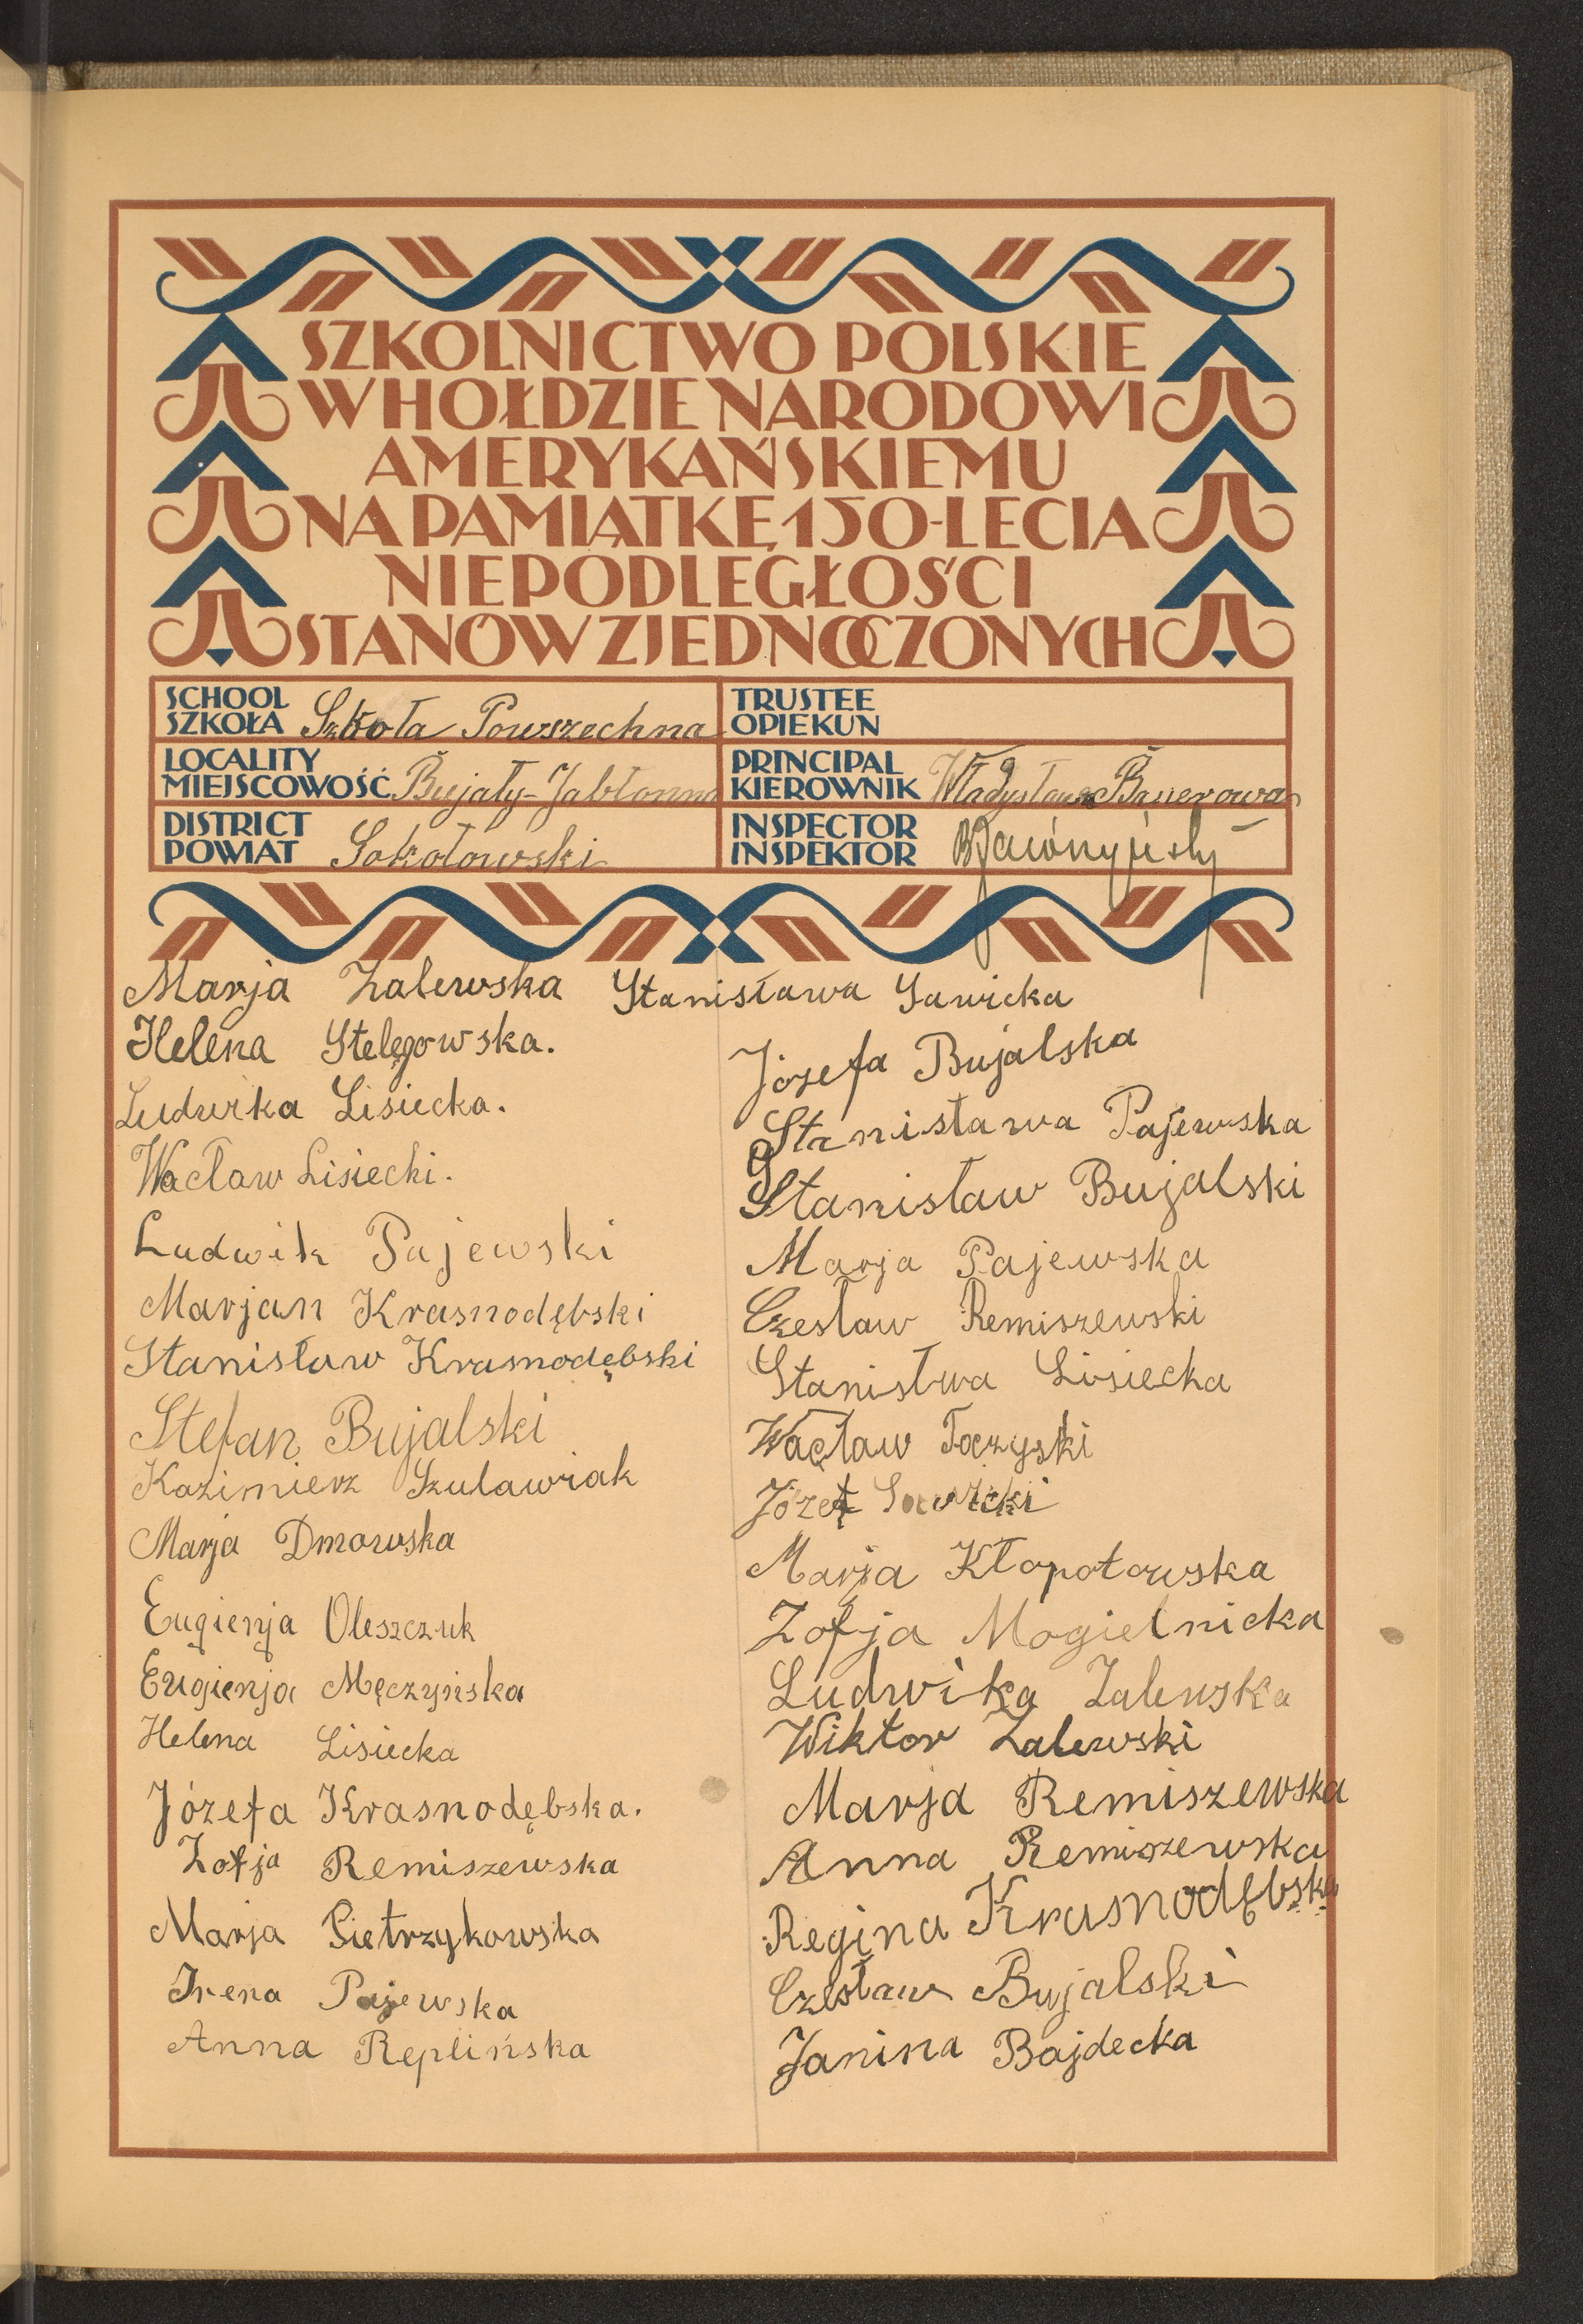 SZKOLNICTWO POLSKIE
W HOŁDZIE NARODOWI
AMERYKAŃSKIEMU
NA PAMIĄTKĘ 150-LECIA
NIEPODLEGŁOŚCI
STANÓW ZJEDNOCZONYCH
SCHOOL
SZKOŁA Szkoła Powszechna
TRUSTEE
OPIEKUN
LOCALITY
MIEJSCOWOŚĆ Bujały-Jabłonna
PRINCIPAL
KIEROWNIK Władysława
DISTRICT
POWIAT Sokołowski
INSPECTOR
INSPEKTOR
Marja Zalewska
Helena Stelęgowska.
Ludwika Lisiecka.
Wacław Lisiecki.
Ludwik Pajewski
Marjan Krasnodębski
Stanisław Krasnodębski
Stefan Bujalski
Kazimierz Szulawiak
Marja Dmowska
Eugienja Oleszczuk
Eugienja Męczyńska
Helena Lisiecka
Józefa Krasnodębska.
Zofja Remiszewska
Marja Pietrzykowska
Irena Pajewska
Anna Replińska
Stanisława Sawicka
Józefa Bujalska
Stanisława Pajewska
Stanisław Bujalski
Marja Pajewska
Czesław Remiszewski
Stanisłwa Lisiecka
Wacław Toczyski
Józef Sawicki
Marja Kłopotowska
Zofja Mogielnicka
Ludwika Zalewska
Wiktor Zalewski
Marja Remiszewska
Anna Remiszewska
Regina Krasnodębska
Czesław Bujalski
Janina Bajdecka